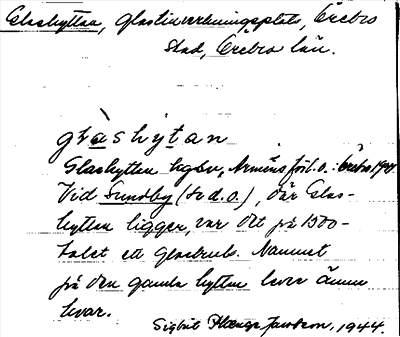 Glashyttan, glastillverkningsplats, Örebro
stad, Örebro län.
glàshytan
Glashyttan hgbv, Armens förl.o.: Örebro 1901.
Vid Sundby (se d.o.), där Glas-
hyttan ligger, var det på 1500-
talet ett glasbruk. Namnet
på den gamla hyttan lever ännu
kvar.
Sigbrit Plænge Jacobson, 1944.